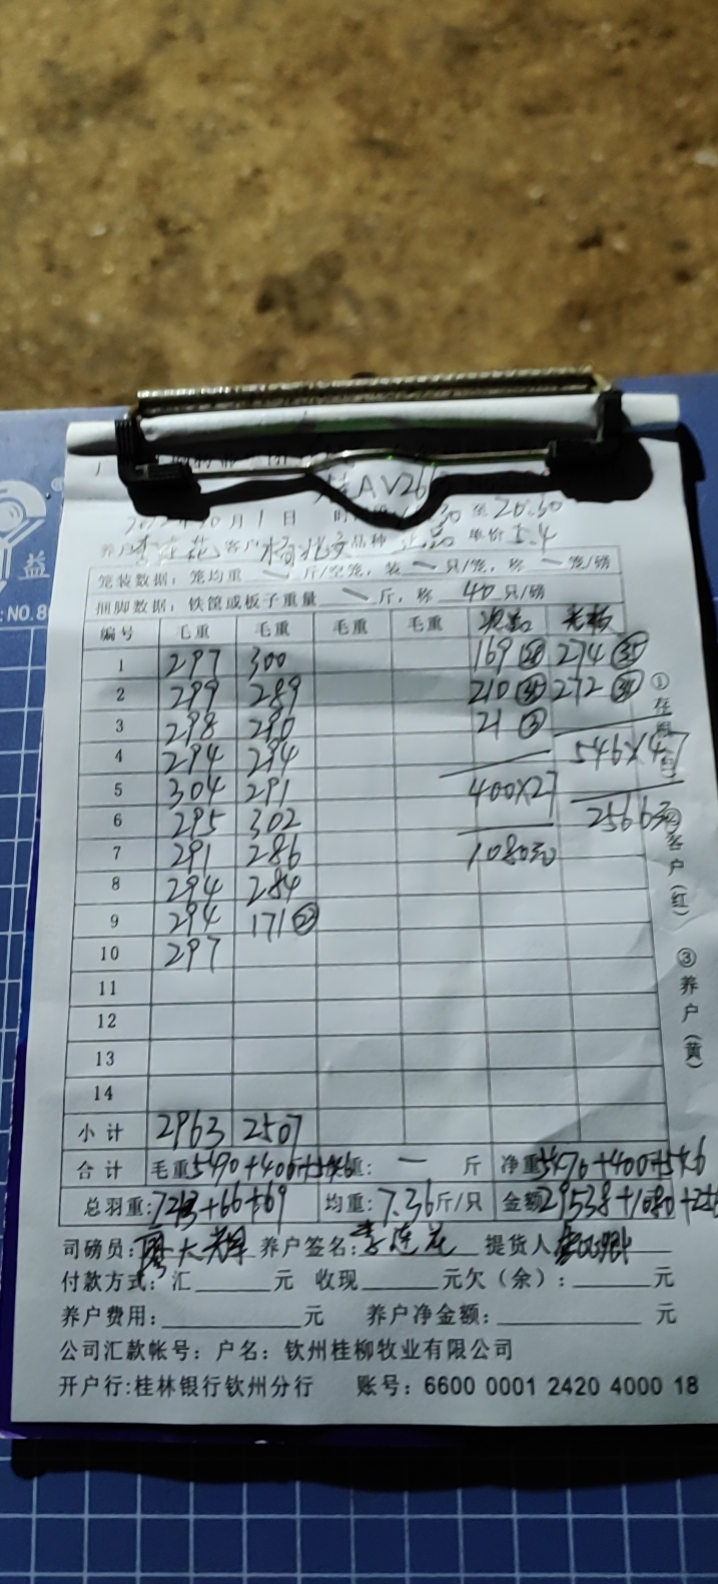 益
NO.8
桂AV26
月1日 至20:30
养户李连花客户 品种正品单价5.4
笼装数据：笼均重 斤/空笼，装 只/笼，称 笼/磅
捆脚数据：铁筐或板子重量 斤，称 40 只/磅
编号 毛重 毛重 毛重 毛重
1 297 300 169 28 274 35
2 299 289 210 35 272 34
3 298 290 21 3
4 294 294 546×4.7
5 304 291 400×27
6 295 302 2566元
7 291 286 1080元
8 294 284
9 294 171 22
10 297
11
12
13
14
小计 2963 2507
合计 毛重5470+400+546 重：一 斤 净重5470+400+546
总羽重：743+66+69 均重：7.36斤/只 金额29538+1080+256
司磅员： 养户签名：李连花 提货人
付款方式：汇 元 收现 元欠（余）： 元
养户费用： 元 养户净金额： 元
公司汇款帐号：户名：钦州桂柳牧业有限公司
开户行:桂林银行钦州分行 账号：6600 0001 2420 4000 18
①
②客户（红）
③养户（黄）